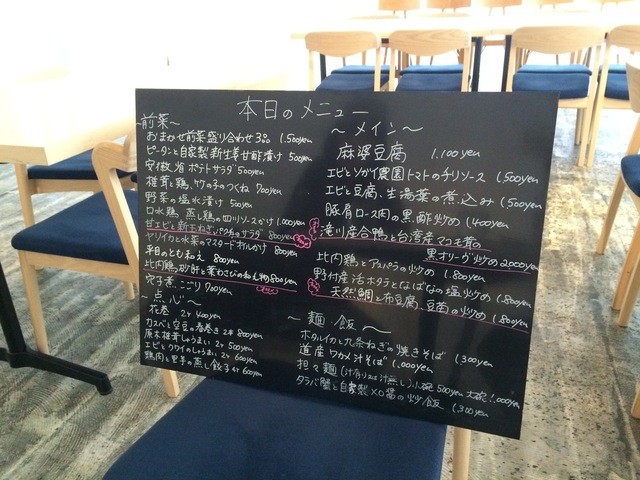 本日のメニュー
〜前菜〜
おまかせ前菜盛り合わせ3品 1,500yen
ピータンと自家製新生姜甘酢漬け 500yen
安徽省ポテトサラダ 500yen
椎茸と鶏、のつくね 700yen
野菜の塩水漬け 500yen
口水鶏 蒸し鶏の四川ソースかけ 1,000yen
甘エビと新玉ねぎ、パクチーのサラダ 800yen
ヤリイカと水菜のマスタードオイルがけ 800yen
平目のとも和え 800yen
比内鶏砂肝と葉わさびの和え物 800yen
穴子煮こごり 700yen
〜点心〜
花巻 2ケ 400yen
カスベと空豆の春巻き 2本 800yen
原木椎茸しゅうまい 2ケ 500yen
エビとクワイのしゅうまい 2ケ 600yen
鶏肉と里芋の蒸し餃子 4ケ 600yen
〜メイン〜
麻婆豆腐 1,100yen
エビとソガイ農園トマトのチリソース 1,500yen
エビと豆腐、生湯葉の煮込み 1,500yen
豚肩ロース肉の黒酢炒め 1,400yen
滝川産合鴨と台湾産マコモ茸の
黒オリーヴ炒め 2,000yen
比内鶏とアスパラの炒め 1,800yen
野付産活ホタテとなばなの塩炒め 1,800yen
天然鯛と布豆腐、豆苗の炒め 1,800yen
〜麺・飯〜
ホタルイカと九条ねぎの焼きそば 1,300yen
道産ワカメ汁そば 1,000yen
担々麺(汁有り又は汁無し)小碗 500yen 大碗 1,000yen
タラバ蟹と自家製XO醤の炒飯 1,300yen